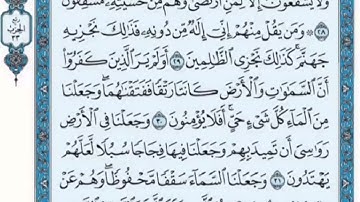 وَلَا يَشْفَعُونَ إِلَّا لِمَنِ ارْتَضَىٰ وَهُم مِّنْ خَشْيَتِهِ مُشْفِقُونَ
٢٨ ۞ وَمَن يَقُلْ مِنْهُمْ إِنِّي إِلَٰهٌ مِّن دُونِهِ فَذَٰلِكَ نَجْزِيهِ
جَهَنَّمَ كَذَٰلِكَ نَجْزِي الظَّالِمِينَ ٢٩ أَوَلَمْ يَرَ الَّذِينَ كَفَرُوا
أَنَّ السَّمَاوَاتِ وَالْأَرْضَ كَانَتَا رَتْقًا فَفَتَقْنَاهُمَا وَجَعَلْنَا
مِنَ الْمَاءِ كُلَّ شَيْءٍ حَيٍّ أَفَلَا يُؤْمِنُونَ ٣٠ وَجَعَلْنَا فِي الْأَرْضِ
رَوَاسِيَ أَن تَمِيدَ بِهِمْ وَجَعَلْنَا فِيهَا فِجَاجًا سُبُلًا لَّعَلَّهُمْ
يَهْتَدُونَ ٣١ وَجَعَلْنَا السَّمَاءَ سَقْفًا مَّحْفُوظًا وَهُمْ عَنْ
ربع
الحزب
٣٣